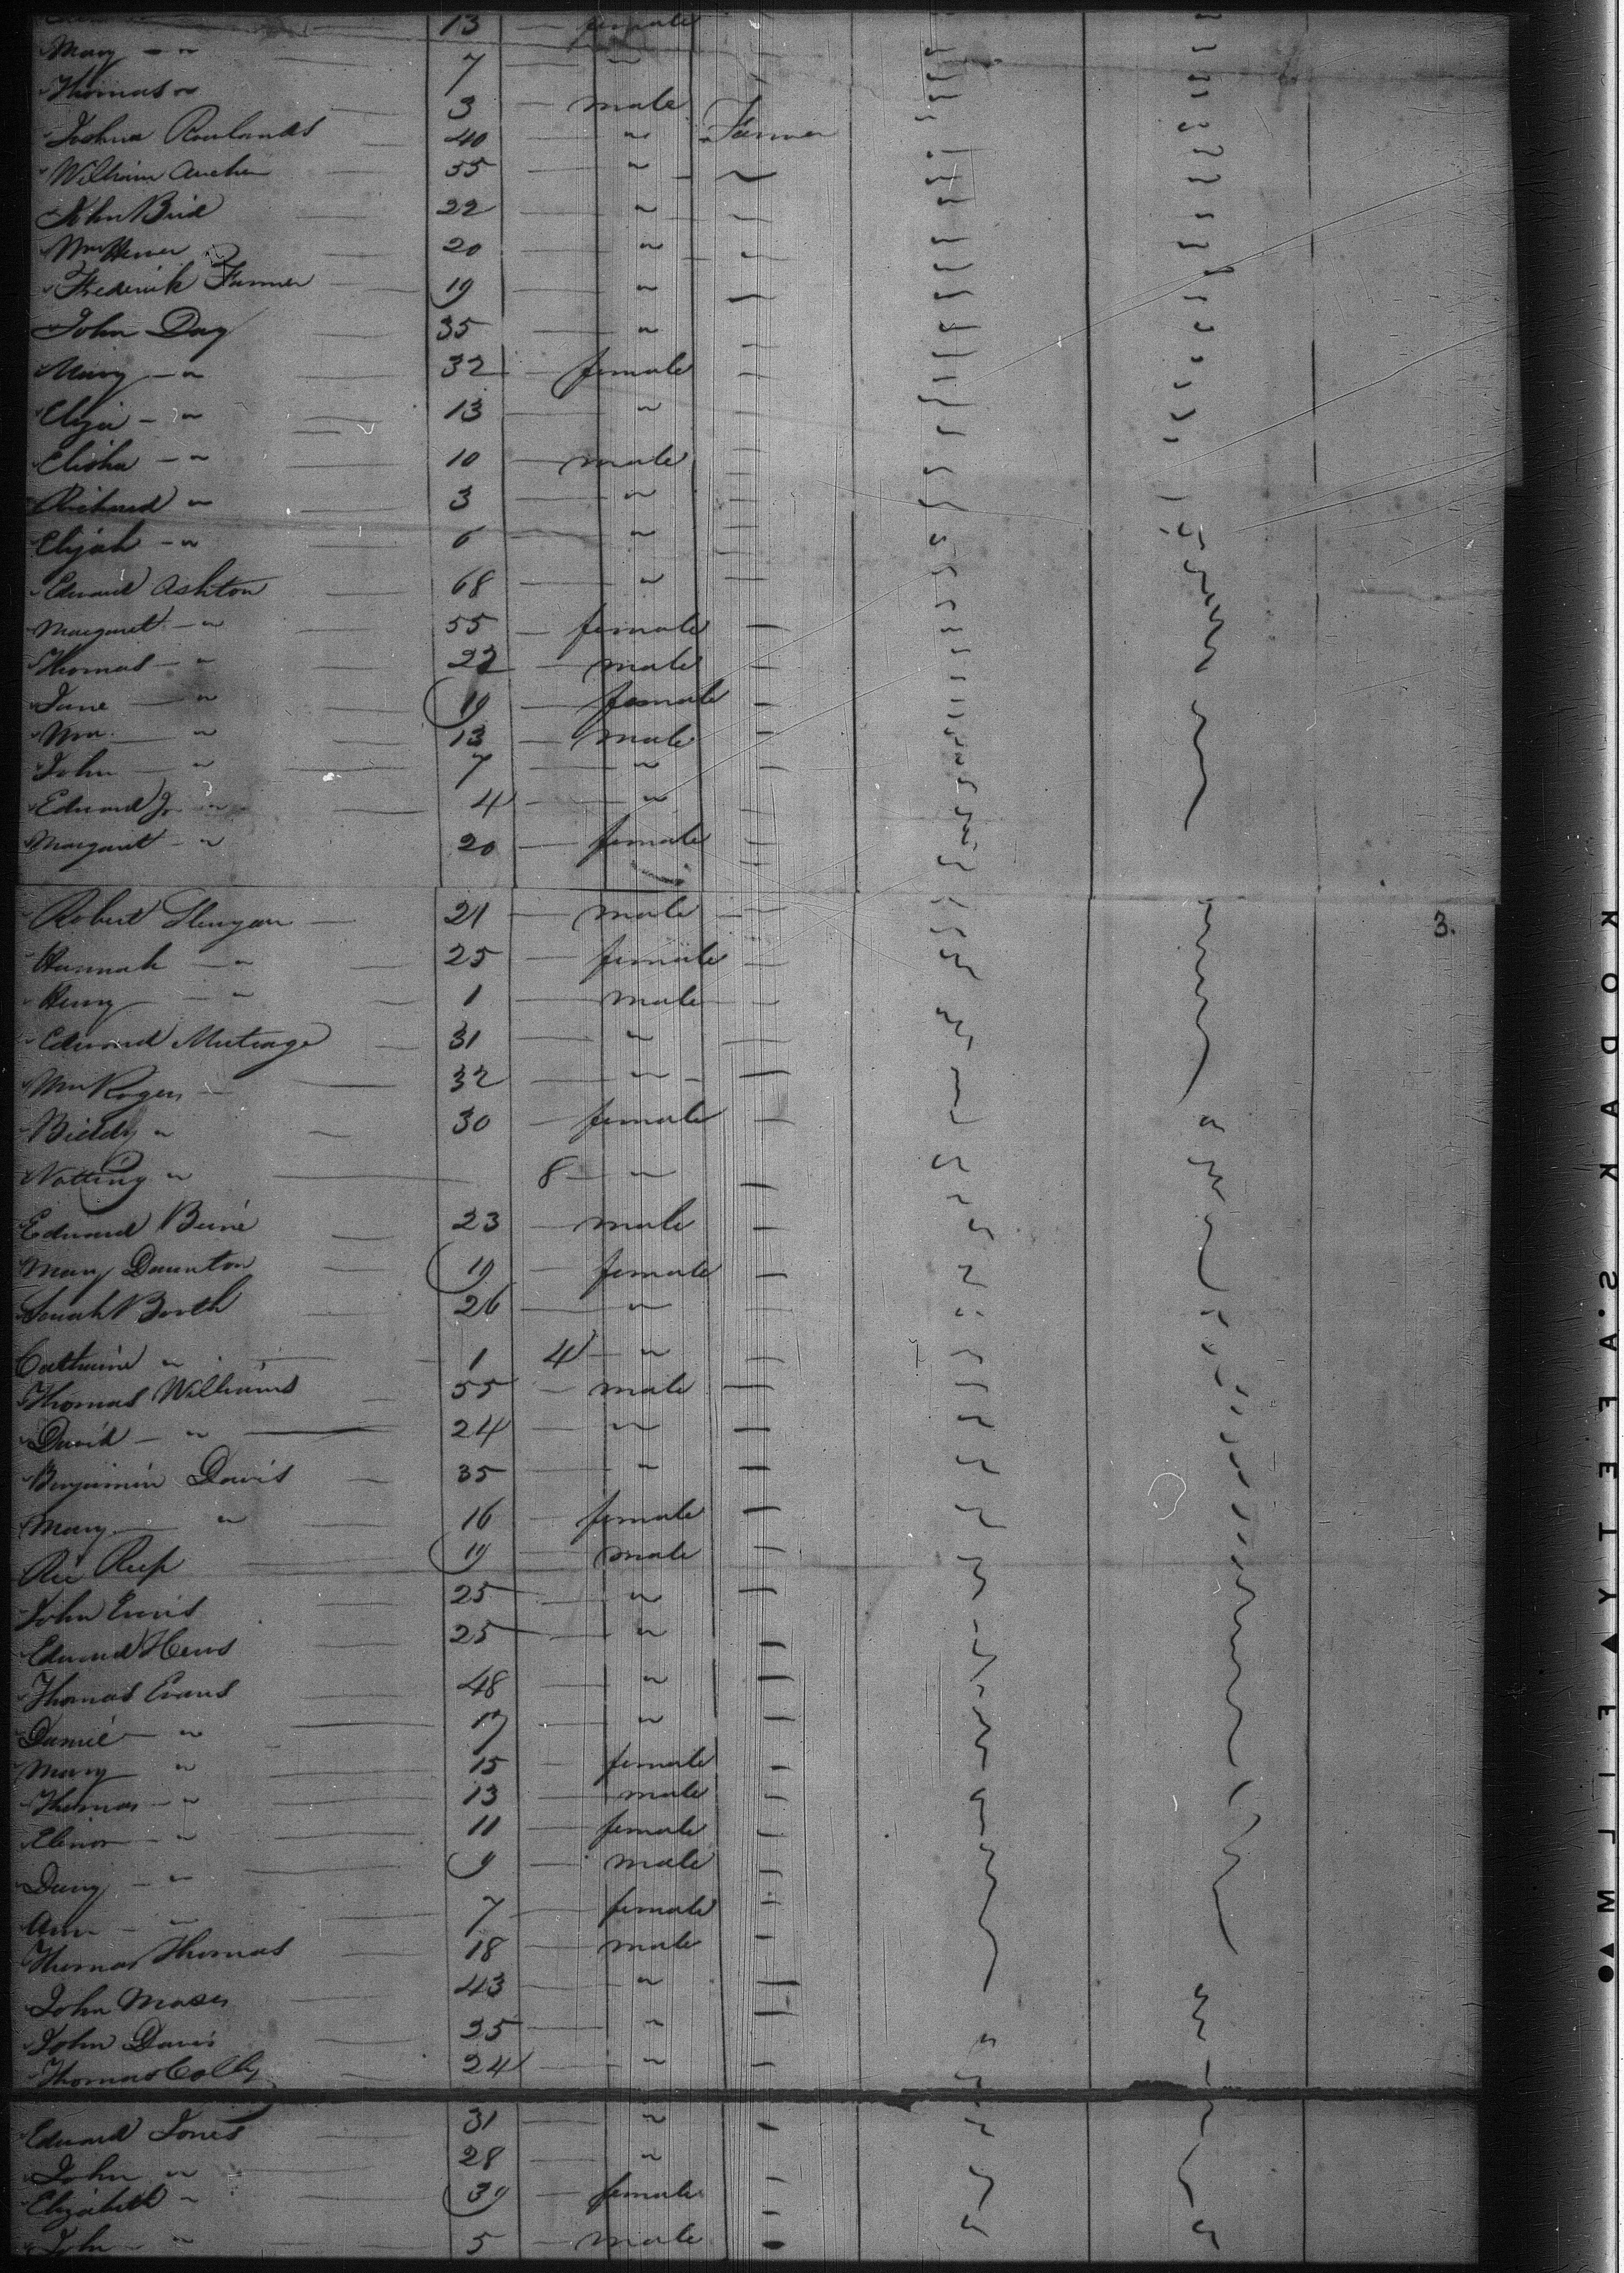 13 — female
Mary — " 7 — "
Thomas " 3 — male
Joshua Rowlands 40 — " Farmer
William Archer 55 — " — "
John Bird 22 — " —
Wm 20 — " —
Frederick Farmer 19 — " —
John Day 35 — " —
Mary — " 32 — female —
Eliza — " 13 — " —
Elisha — " 10 — male —
Richard " 3 — " —
Elijah — " 6 — " —
Edward Ashton 68 — " —
Margaret — " 55 — female —
Thomas — " 22 — male —
Jane — " 19 — female —
Wm — " 13 — male —
John — " 7 — " —
Edward Jr " 4 — " —
Margaret — " 20 — female —
Robert 21 — male —
3.
Hannah — " 25 — female —
Henry — " 1 — male —
Edward 31 — " —
Wm Rogers 32 — " —
Biddy " 30 — female —
" 8 — " —
Edward 23 — male —
Mary Daunton 19 — female —
Sarah Booth 26 — "
Catherine " 1 4 — " —
Thomas Williams 55 — male —
David — " 24 — " —
Benjamin Davis 35 — " —
Mary — " 16 — female —
19 — male —
John 25 — " —
Edward 25 — " —
Thomas Evans 48 — " —
Daniel — " 17 — " —
Mary " 15 — female —
Thomas — " 13 — male —
Elinor — " 11 — female —
— " 9 — male —
Ann — " 7 — female —
Thomas Thomas 18 — male —
John Moses 43 — " —
John Davis 25 — " —
Thomas Colly 24 — " —
Edward Jones 31 — " —
John " 28 — " —
Elizabeth " 39 — female —
John — " 5 — male —
KODAK SAFETY FILM